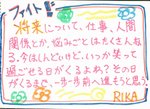 ファイト
将来について、仕事、人間
関係とか、悩みごとはたくさんあ
る。今はしんどいけど、いつか笑って
過ごせる日がくるよね？その日
がくるまで一歩一歩前へ進もうと思う。
RIKA